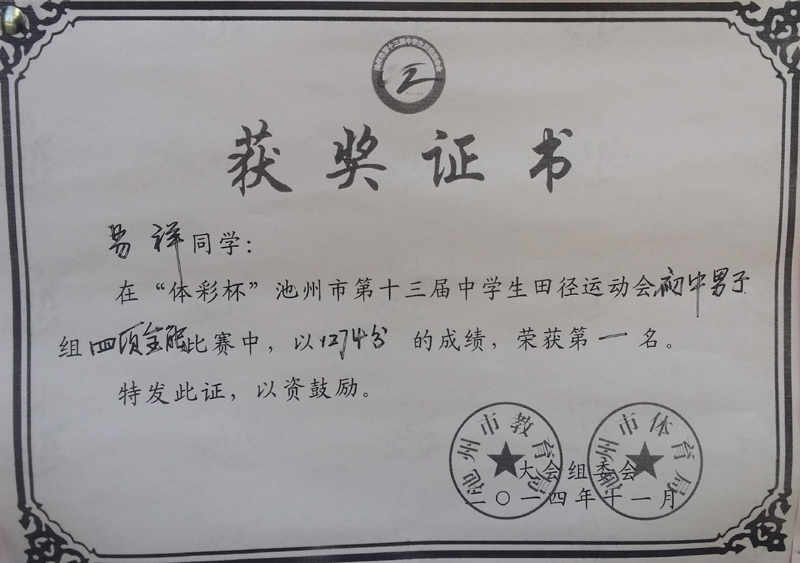 获奖证书
易祥同学：
在“体彩杯”池州市第十三届中学生田径运动会初中男子
组四项全能比赛中，以1274分的成绩，荣获第一名。
特发此证，以资鼓励。
池州市教育局
池州市体育局
大会组委会
二〇一四年十一月